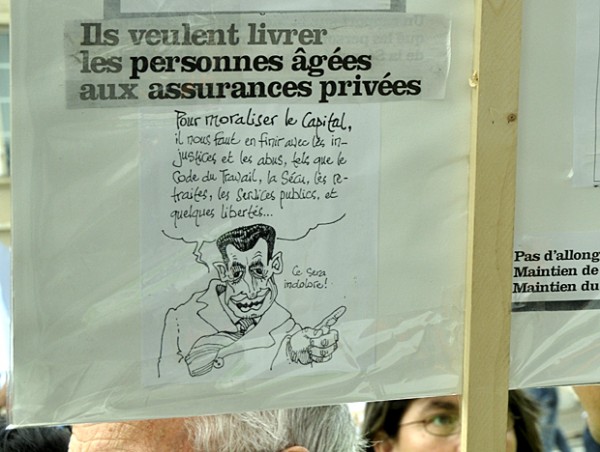 Ils veulent livrer
les personnes âgées
aux assurances privées
Pour moraliser le Capital,
il nous faut en finir avec les in-
justices et les abus, tels que le
Code du Travail, la Sécu, les re-
traites, les services publics, et
quelques libertés...
Ce sera
indolore!
Pas d'allong
Maintien de
Maintien du